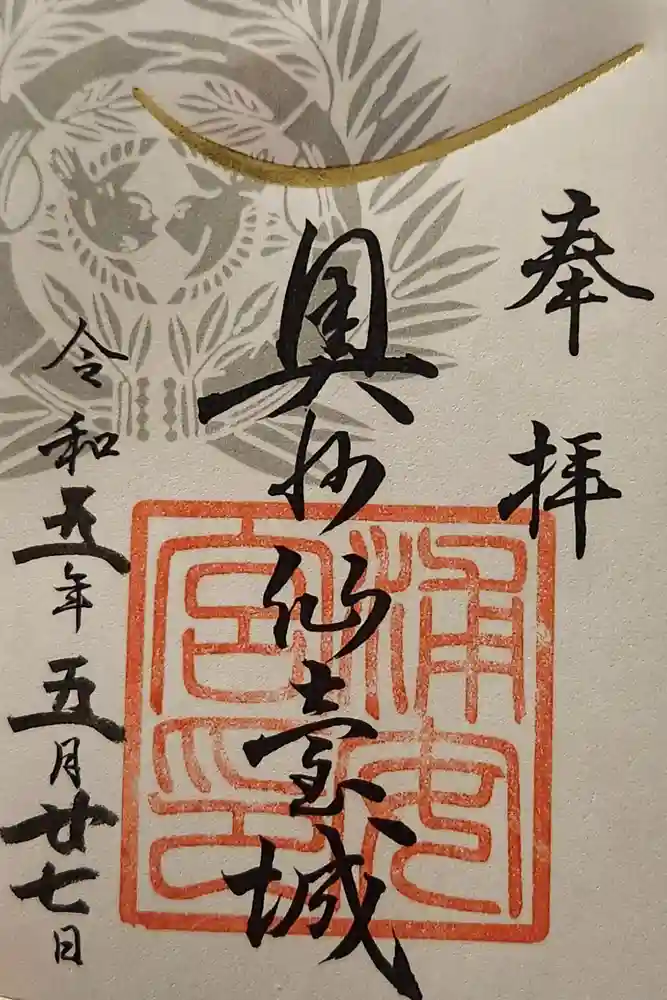 奉拝
奥州仙臺城
浦安
宮印
令和五年五月廿七日